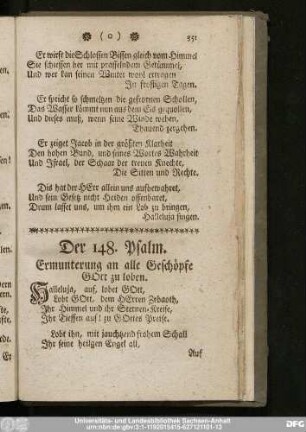 ( o ) 551
Er wirft die Schlossen Bissen gleich vom Himmel
Sie schiessen her mit prasselndem Getümmel,
Und wer kan seinen Winter wohl ertragen
In frostigen Tagen.
Er spricht so schmeltzen die gefrornen Schollen,
Das Wasser kömmt nun aus dem Eis gequollen,
Und dieses muß, wenn seine Winde wehen,
Thauend zergehen.
Er zeiget Jacob in der größten Klarheit
Den hohen Bund, und seines Wortes Wahrheit
Und Israel, der Schaar der treuen Knechte,
Die Sitten und Rechte.
Dis hat der HErr allein uns aufbewahret,
Und sein Gesetz nicht Heiden offenbaret,
Drum lasset uns, um ihm ein Lob zu bringen,
Halleluja singen.
Der 148. Psalm.
Ermunterung an alle Geschöpfe
GOtt zu loben.
Halleluja, auf, lobet GOtt,
Lobt GOtt, dem HErren Zebaoth,
Ihr Himmel und ihr Sternen-Kreise,
Ihr Tieffen auf! zu GOttes Preise.
Lobt ihn, mit jauchtzend frohem Schall
Ihr seine heilgen Engel all,
Auf
Universitäts- und Landesbibliothek Sachsen-Anhalt
urn:nbn:de:gbv:3:1-1192015415-627121101-13
DFG